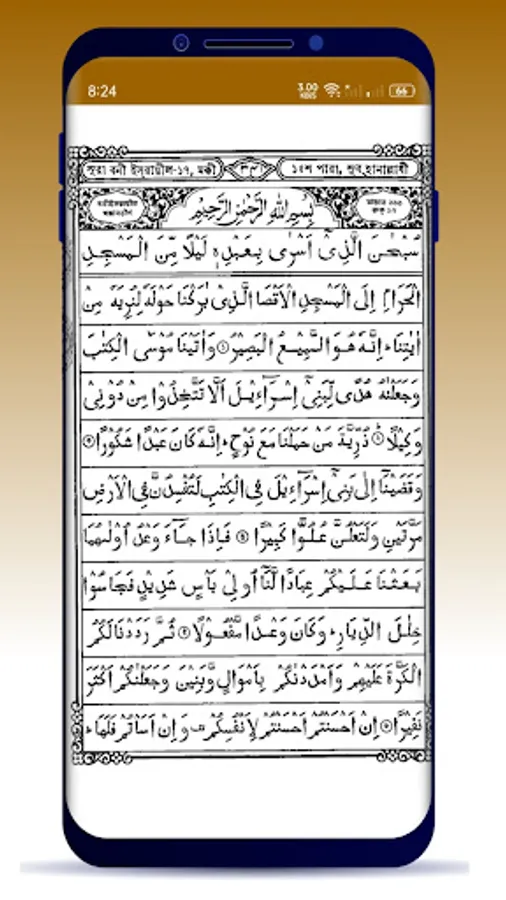 8:24 3.00 KB/S 66
সূরা বনী ইসরাঈল-১৭, মক্কী ১৫শ পারা, সুব্‌হানাল্লাযী
بِسْمِ اللهِ الرَّحْمٰنِ الرَّحِيْمِ
سُبْحٰنَ الَّذِيْٓ اَسْرٰى بِعَبْدِهٖ لَيْلًا مِّنَ الْمَسْجِدِ
الْحَرَامِ اِلَى الْمَسْجِدِ الْاَقْصَا الَّذِيْ بٰرَكْنَا حَوْلَهٗ لِنُرِيَهٗ مِنْ
اٰيٰتِنَا ؕ اِنَّهٗ هُوَ السَّمِيْعُ الْبَصِيْرُ ① وَاٰتَيْنَا مُوْسَى الْكِتٰبَ
وَجَعَلْنٰهُ هُدًى لِّبَنِيْٓ اِسْرَآءِيْلَ اَلَّا تَتَّخِذُوْا مِنْ دُوْنِيْ
وَكِيْلًا ② ذُرِّيَّةَ مَنْ حَمَلْنَا مَعَ نُوْحٍ ؕ اِنَّهٗ كَانَ عَبْدًا شَكُوْرًا ③
وَقَضَيْنَآ اِلٰى بَنِيْٓ اِسْرَآءِيْلَ فِي الْكِتٰبِ لَتُفْسِدُنَّ فِي الْاَرْضِ
مَرَّتَيْنِ وَلَتَعْلُنَّ عُلُوًّا كَبِيْرًا ④ فَاِذَا جَآءَ وَعْدُ اُوْلٰىهُمَا
بَعَثْنَا عَلَيْكُمْ عِبَادًا لَّنَآ اُولِيْ بَاْسٍ شَدِيْدٍ فَجَاسُوْا
خِلٰلَ الدِّيَارِ ؕ وَكَانَ وَعْدًا مَّفْعُوْلًا ⑤ ثُمَّ رَدَدْنَا لَكُمُ
الْكَرَّةَ عَلَيْهِمْ وَاَمْدَدْنٰكُمْ بِاَمْوَالٍ وَّبَنِيْنَ وَجَعَلْنٰكُمْ اَكْثَرَ
نَفِيْرًا ⑥ اِنْ اَحْسَنْتُمْ اَحْسَنْتُمْ لِاَنْفُسِكُمْ ۫ وَاِنْ اَسَاْتُمْ فَلَهَا ؕ